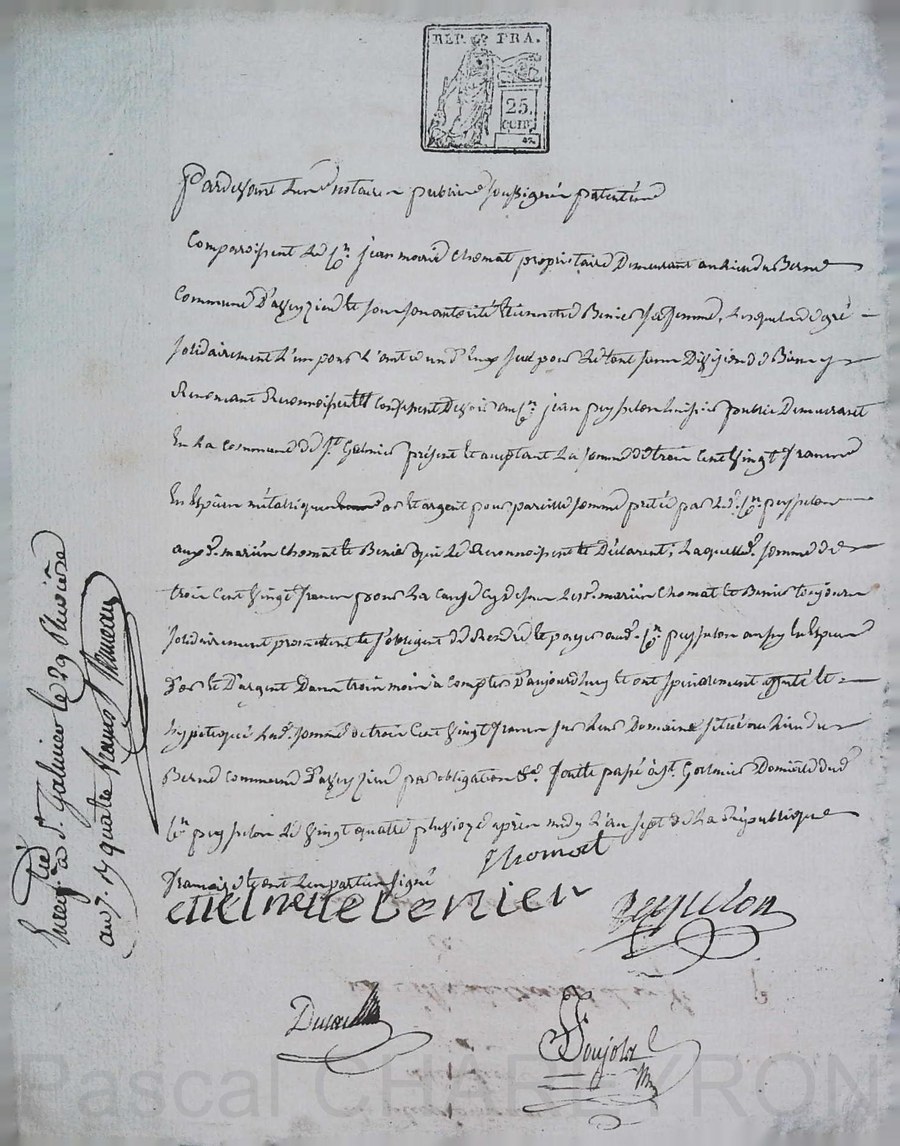 REP. FRA.
25.
CENT.
Pardevant les notaires publics soussignés patentés
Comparoissent le Cn. jean marie Chomat propriétaire Demeurant au lieu du Berne
Commune D'aveyzieu et sous son autorité etiennette Benier sa femme, lesquels de gré
solidairement l'un pour l'autre un d'eux seul pour le tout sans Division de Biens y
Renonçant Reconnoissent Confessent Devoir au Cn. jean peysselon huissier public Demeurant
En la commune de St. Galmier présent et acceptant La somme de trois Cent vingt francs
En Espèces métalliques or et argent pour pareille somme prêtée par led. Cn. peysselon
aux d. mariés Chomat et Benier qui le Reconnoissent et Déclarent; Laquelle d. somme de
trois Cent vingt francs pour La cause cy dessus lesd. mariés Chomat et Benier toujours
solidairement promettent et s'obligent de Rendre et payer aud. Cn. peysselon aussy En Espèces
D'or et D'argent Dans trois mois à compter D'aujourdhuy et ont spécialement affecté et
hypotequé lad. somme de trois Cent vingt francs sur leur Domaine situé au lieu du
Berne commune D'aveyzieu par obligation &c. fait et passé à St. Galmier Domicile dud
Cn. peysselon Le vingt quatre pluviose après midy L'an sept de La République
française et ont les parties signé
Chomat
etiennette benier
peyselon
Ponjolz
Enreg.tré à St. Galmier le 29 Pluviôse
an 7. R quatre francs
Pascal CHABEYRON